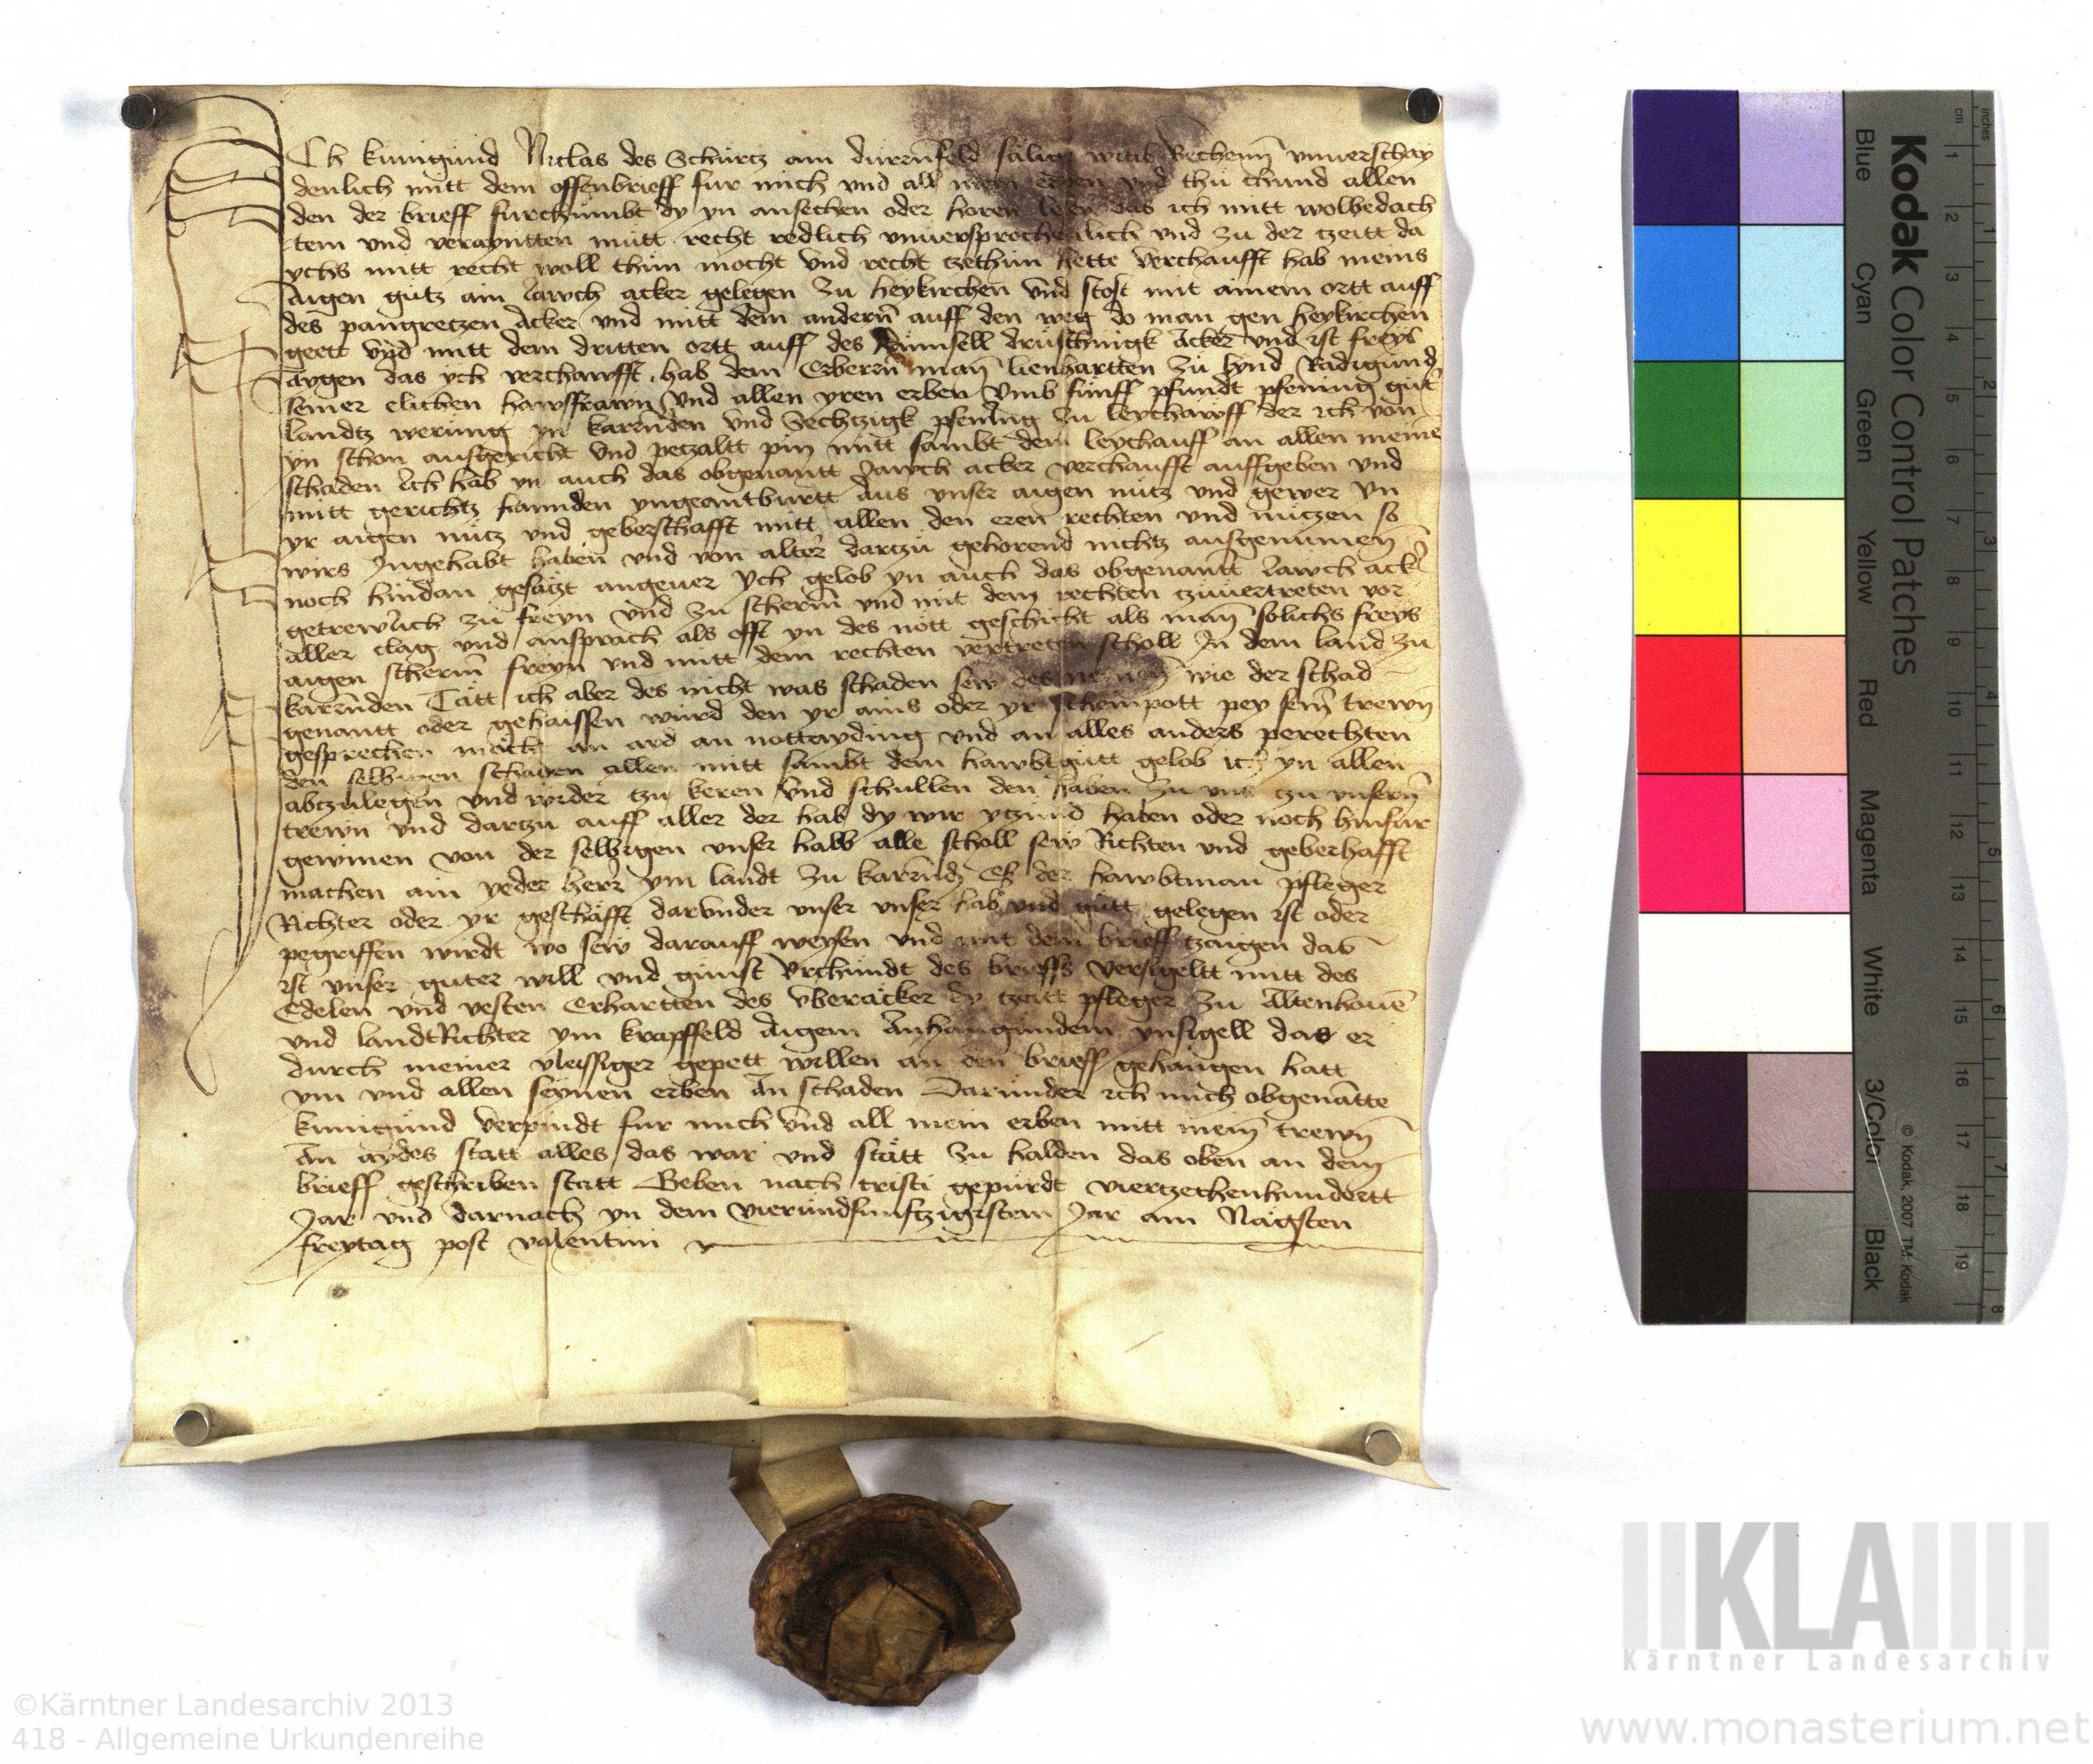 Ich kunigund Niclas des Schurtz am durrnfeld sälign witib Vechenn vnuerschay
denlich mitt dem offenbrieff fur mich vnd all mein erben vnd thu chund allen
den der brieff furchumbt dy yn ansechen oder horen lesen das ich mitt wolbedach
tem vnd verayntten mutt recht redlich vnuersprochenlich vnd zu der tzeitt da
ychs mitt recht woll thun mocht vnd recht tzethun hette Verchaufft hab meins
Aigen gutz ain Jawch acker gelegen zu heykirchen vnd stost mit ainem ortt auff
des pangretzen Acker vnd mitt dem andern auff den weg do man gen heykirchen
geett vnd mitt dem dritten ortt auff des Acker vnd ist freys
aygen das ych verchawfft hab dem Erberen man lienhartten zu lynd Radigund
seiner elichen hawsfrawn Vnd allen yren erben Vmb funff pfundt pfening gut
landtz werung yn karnden vnd Sechtzigk pfening zu leychawff der ich von
yn schon ausgericht vnd petzaltt pin mitt sambt dem leychauff an allen meinē
schaden Ich hab yn auch das obgenantt Jawch acker verchaufft auffgeben vnd
mitt gerichtz hannden yngeantburtt Aus vnser aigen nutz vnd gewer yn
yr aigen nutz vnd geberschafft mitt allen den eren rechten vnd nutzen so
wirs Ingehabt haben vnd von alter dartzu gehorend nichtz ausgenumen
noch hindan gesatzt angeuer Ych gelob yn auch das obgenantt Jawch acker
getrewlich zu freyn vnd zu scherm vnd mit dem rechten tzuuertreten vor
aller clag vnd ansprach als offt yn des nott geschicht als man solichs freys
aigen scherm freyn vnd mitt dem rechten vertreten scholl In dem land zu
karnden Tätt ich aber des nicht was schaden sew des nemen wie der schad
genantt oder gehaissen wurd den yr ains oder yr scheinpott pey sein trewn
gesprechen mocht an ayd an nottayding vnd an alles anders perechten
den selbigen schaden allen mitt sambt dem hawbtgutt gelob ich yn allen
abtzulegen vnd wider tzu keren vnd schullen den haben zu vns tzu vnsern
trewn vnd dartzu auff aller der hab dy wir ytzund haben oder noch hinfur
gewinen von der selbigen vnser hab alle scholl sew Richten vnd geberhafft
machen ain yeder herr ym landt zu karndn Es der hawbtman pfleger
Richter oder yr geschäfft darvnder vnser vnser hab vnd gutt gelegen ist oder
pegriffen wirdt wo sew darauff weysen vnd mit dem brieff tzaigen das
ist vnser guter will vnd gunst Vrchundt des brieffs Versigeltt mitt des
Edelen vnd vesten Erhartten des vberäcker dy tzeitt pfleger zu Altenhouē
vnd landtRichter ym krapffeld Aigem Anhangundem ynsigell das er
durch meiner vleissiger gepett willen an den brieff gehangen hatt
ym vnd allen seynen erben An schaden Darunder ich mich obgenātte
kunigund verpindt fur mich vnd all mein erben mitt mein trewn
An aydes statt alles das war vnd stätt zu halden das oben an dem
brieff geschriben statt Geben nach cristi gepurdt viertzechenhundertt
Jar vnd darnach yn dem vierundfunftzigisten Jar am Nagsten
freytag post valentini
Kodak Color Control Patches
Blue Cyan Green Yellow Red Magenta White 3/Color Black
© Kodak, 2007 TM: Kodak
cm 1 2 3 4 5 6 7 8 9 10 11 12 13 14 15 16 17 18 19
inches 1 2 3 4 5 6 7 8
KLA
Kärntner Landesarchiv
©Kärntner Landesarchiv 2013
418 - Allgemeine Urkundenreihe
www.monasterium.net